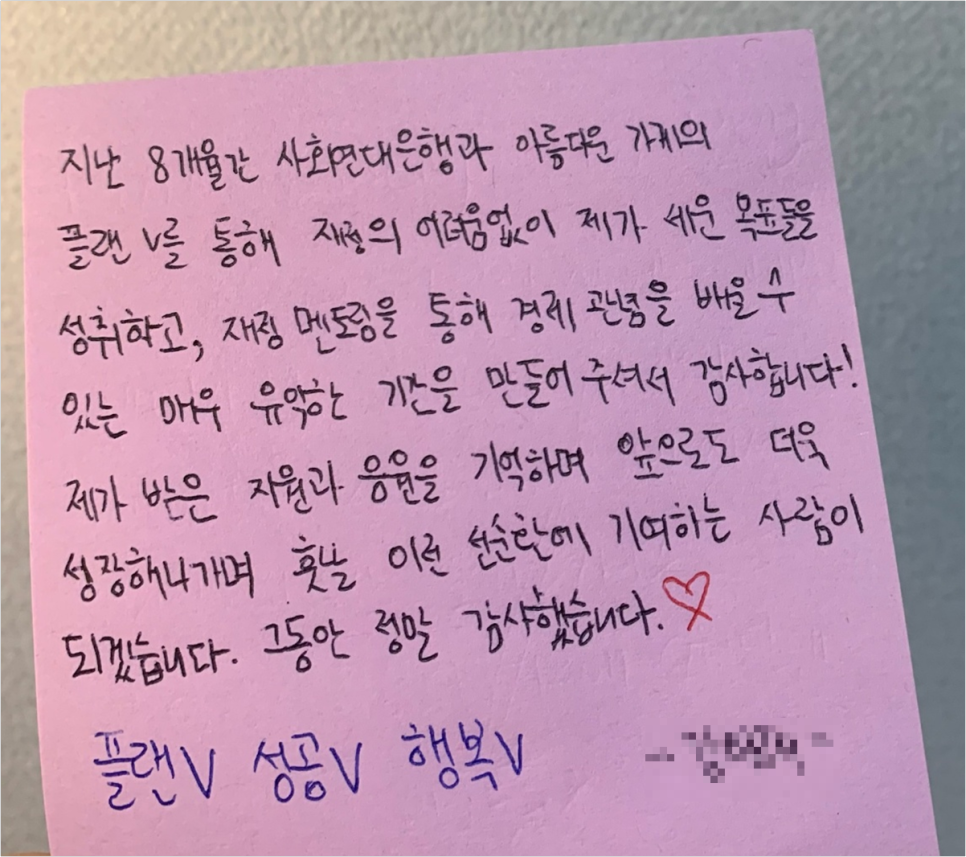 지난 8개월간 사회연대은행과 아름다운 가게의
플랜 V를 통해 재정의 어려움없이 제가 세운 목표들을
성취하고, 재정 멘토링을 통해 경제 관념을 배울 수
있는 매우 유익한 기간을 만들어 주셔서 감사합니다!
제가 받은 지원과 응원을 기억하며 앞으로도 더욱
성장해나가며 훗날 이런 선순환에 기여하는 사람이
되겠습니다. 그동안 정말 감사했습니다.
플랜V 성공V 행복V